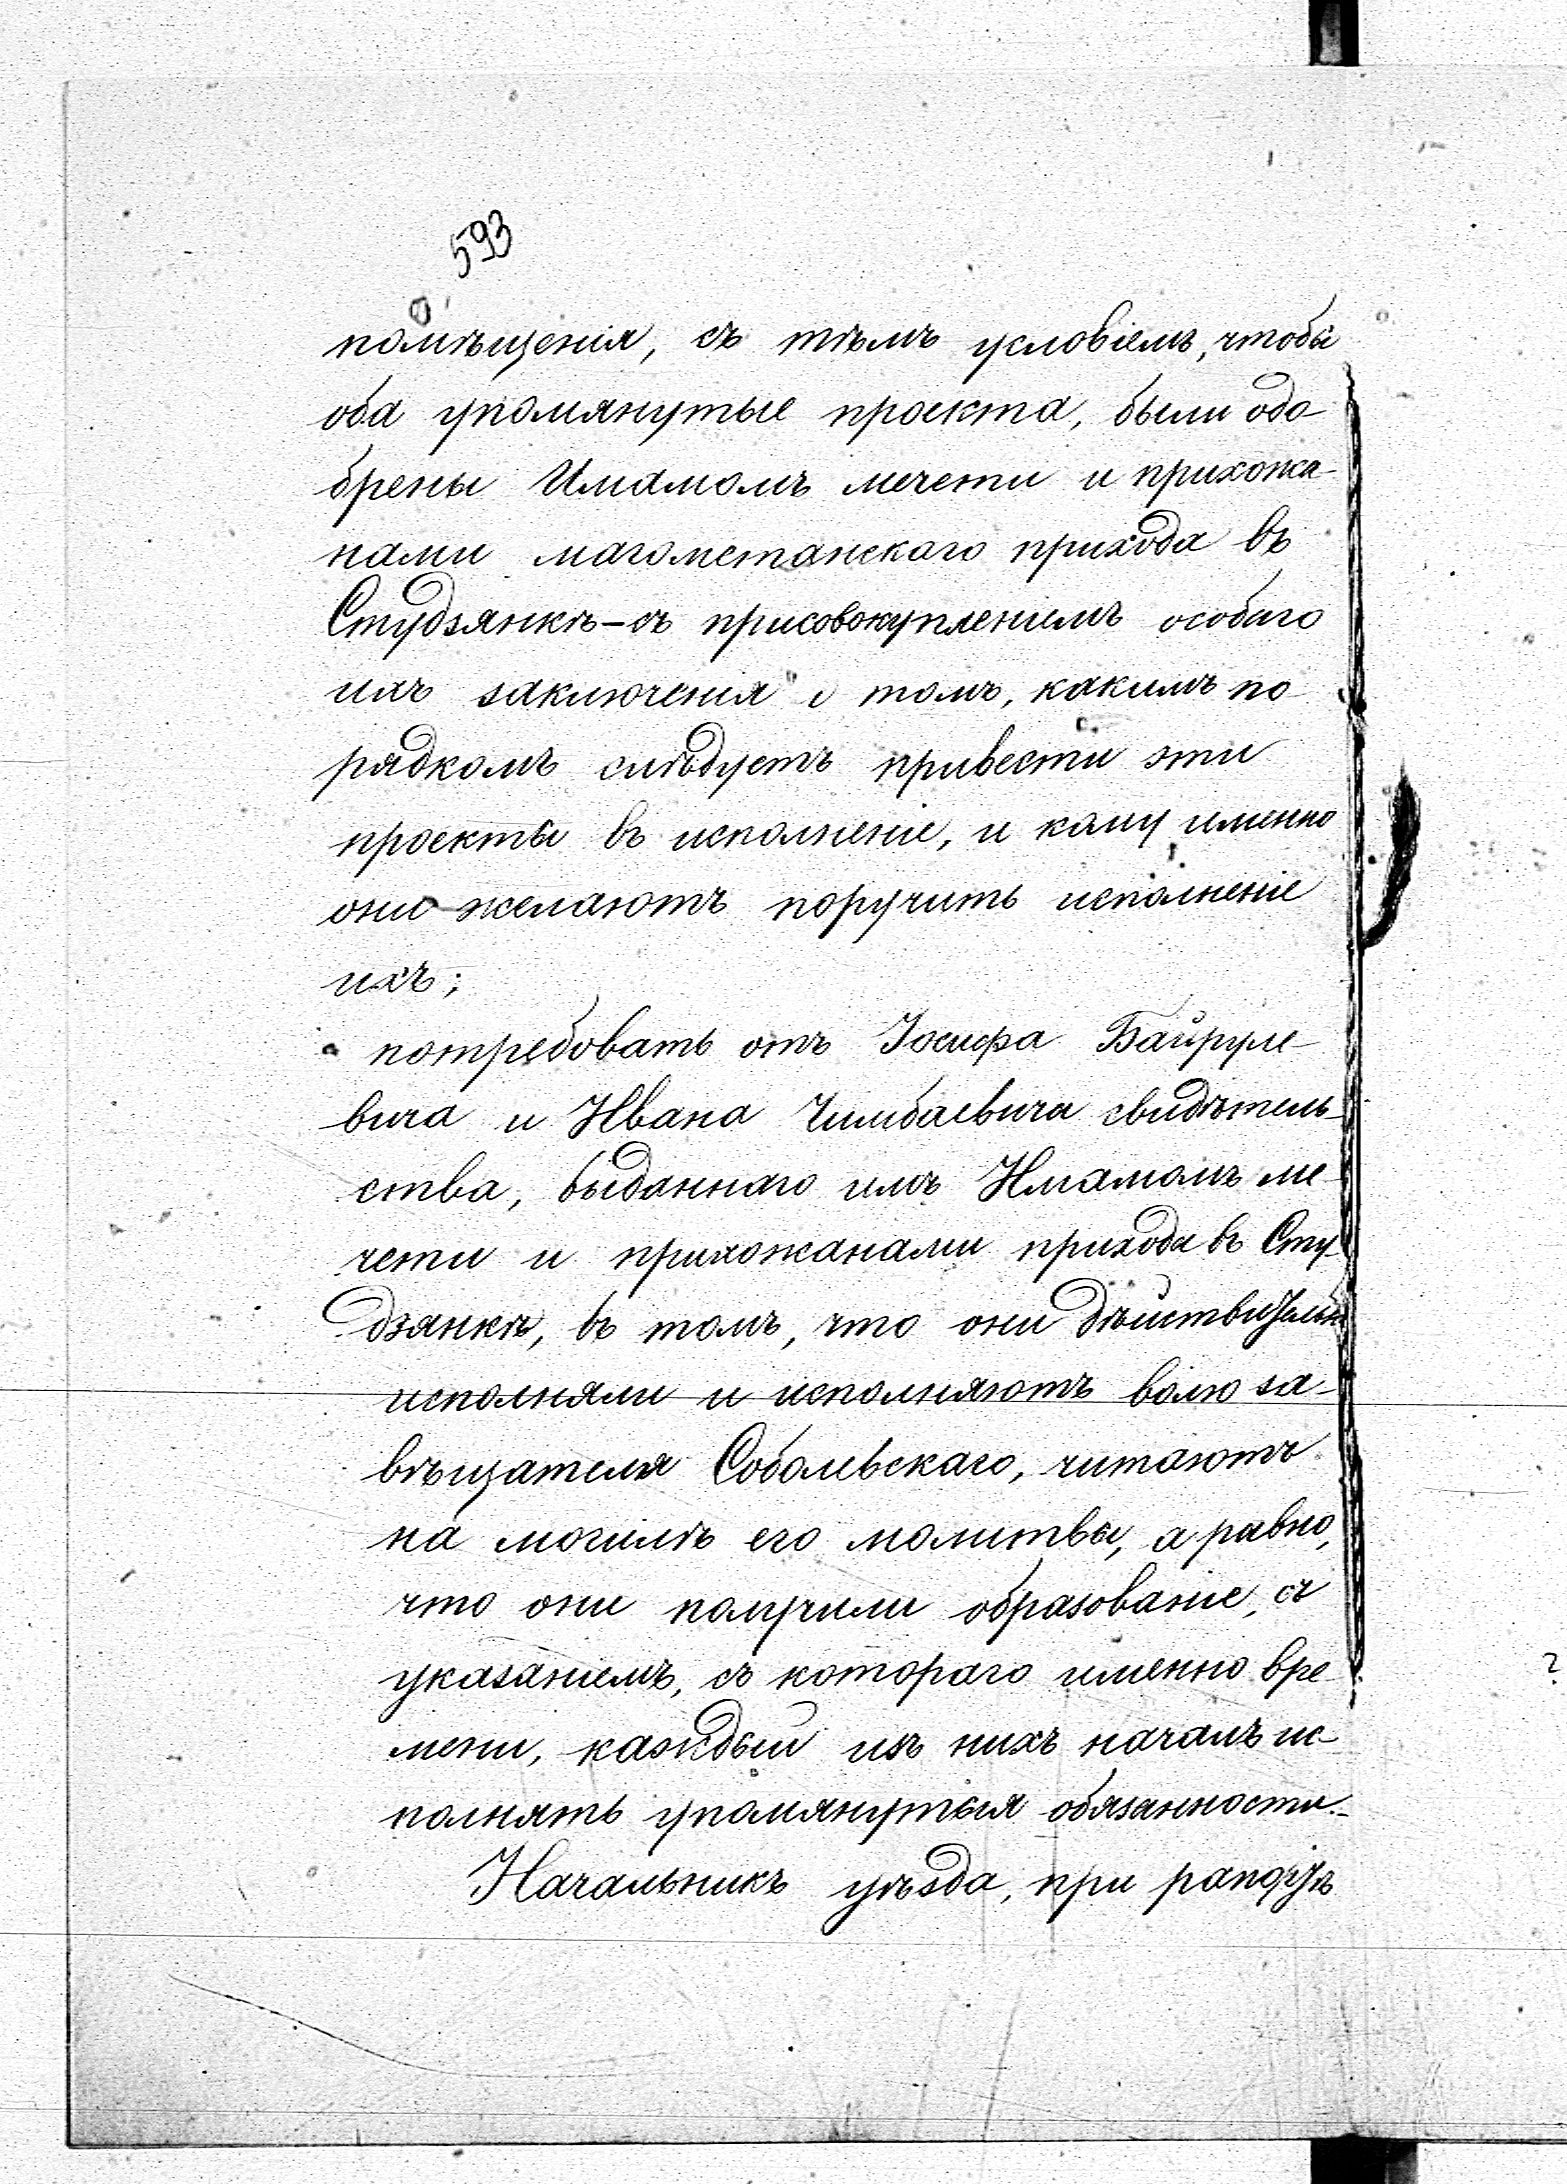 593
помѣщенія, съ тѣмъ условіемъ, чтобы
оба упомянутые проекта, были одо-
брены Имамомъ мечети и прихожа-
нами магометанскаго прихода въ
Студзянкѣ - съ присовокупленіемъ особаго
ихъ заключенія о томъ, какимъ по-
рядкомъ слѣдуетъ привести эти
проекты въ исполненіе, и кому именно
они желаютъ поручить исполненіе
ихъ;
потребовать отъ Іосифа Байруле-
вича и Ивана Чимбаевича свидѣтель-
ства, выданнаго имъ Имамомъ ме-
чети и прихожанами прихода въ Сту-
дзянкѣ, въ томъ, что они дѣйствительно
исполняли и исполняютъ волю за-
вѣщателя Соболевскаго, читаютъ
на могилѣ его молитвы, а равно,
что они получили образованіе, съ
указаніемъ, съ котораго именно вре-
мени, каждый изъ нихъ началъ ис-
полнять упомянутыя обязанности.-
Начальникъ уѣзда, при рапортѣ